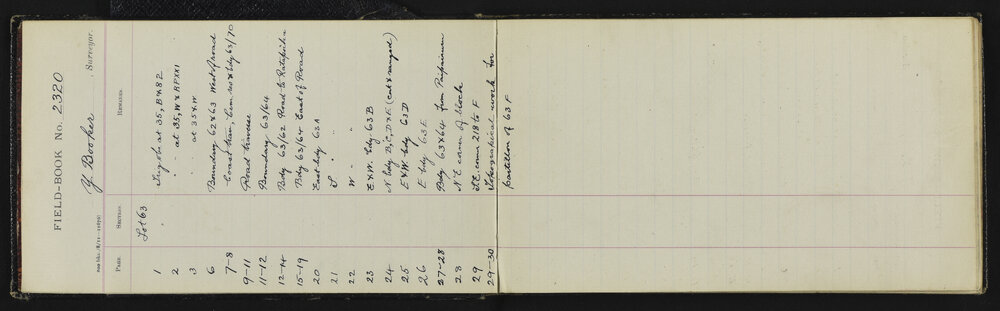 FIELD-BOOK No. 2320
Y Booker Surveyor.
PAGE. SECTION. REMARKS.
Lot 63
1 Trig obs at 35, B & 82
2 " . at 35, W & RPXXI
3 " at 35 & W
6 Boundary 62 & 63 West of road
7-8 Coast trav, & bdy 63/70
9-11 Road traverse
11-12 Boundary 63/64
12-14 Bdy 63/62 Road to
15-19 Bdy 63/64 East of Road
20 East bdy 63A
21 S " "
22 W " "
23 E & W. bdy. 63B
24 N bdy B, C, D & E (cut & ranged)
25 E & W bdy 63D
26 E bdy 63E
27-28 Bdy 63 & 64 from
28 N E corner of block
29 S.E. corner 218 to F
29-30 Topographical work for
partition of 63 F